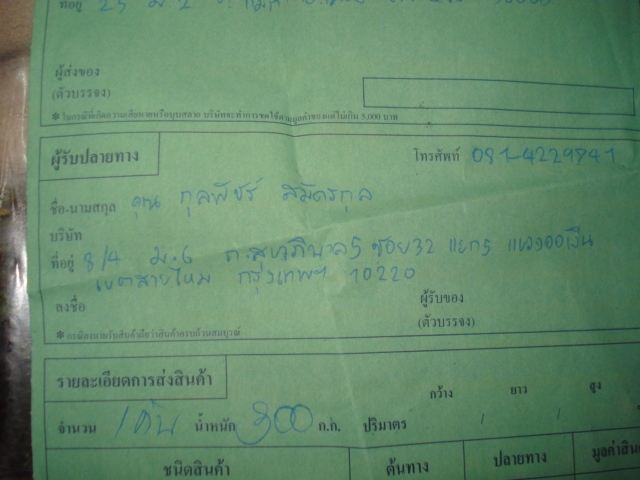 ที่อยู่ 25 ม.2
ผู้ส่งของ
(ตัวบรรจง)
* ในกรณีที่เกิดความเสียหายหรือบุบสลาย บริษัทจะทำการชดใช้ตามมูลค่าของแต่ไม่เกิน 5,000 บาท
ผู้รับปลายทาง
โทรศัพท์ 081-4229841
ชื่อ-นามสกุล คุณ กุลพัชร์ สมิตรกุล
บริษัท
ที่อยู่ 8/4 ม.6 ถ.สุขาภิบาล5 ซอย32 แยก5 แขวงออเงิน
เขตสายไหม กรุงเทพฯ 10220
ลงชื่อ
ผู้รับของ
(ตัวบรรจง)
* กรณีลงนามรับสินค้าถือว่าสินค้าครบถ้วนสมบูรณ์
รายละเอียดการส่งสินค้า
กว้าง ยาว สูง
จำนวน 1 คัน น้ำหนัก 300 ก.ก. ปริมาตร / /
ชนิดสินค้า ต้นทาง ปลายทาง มูลค่าสิน